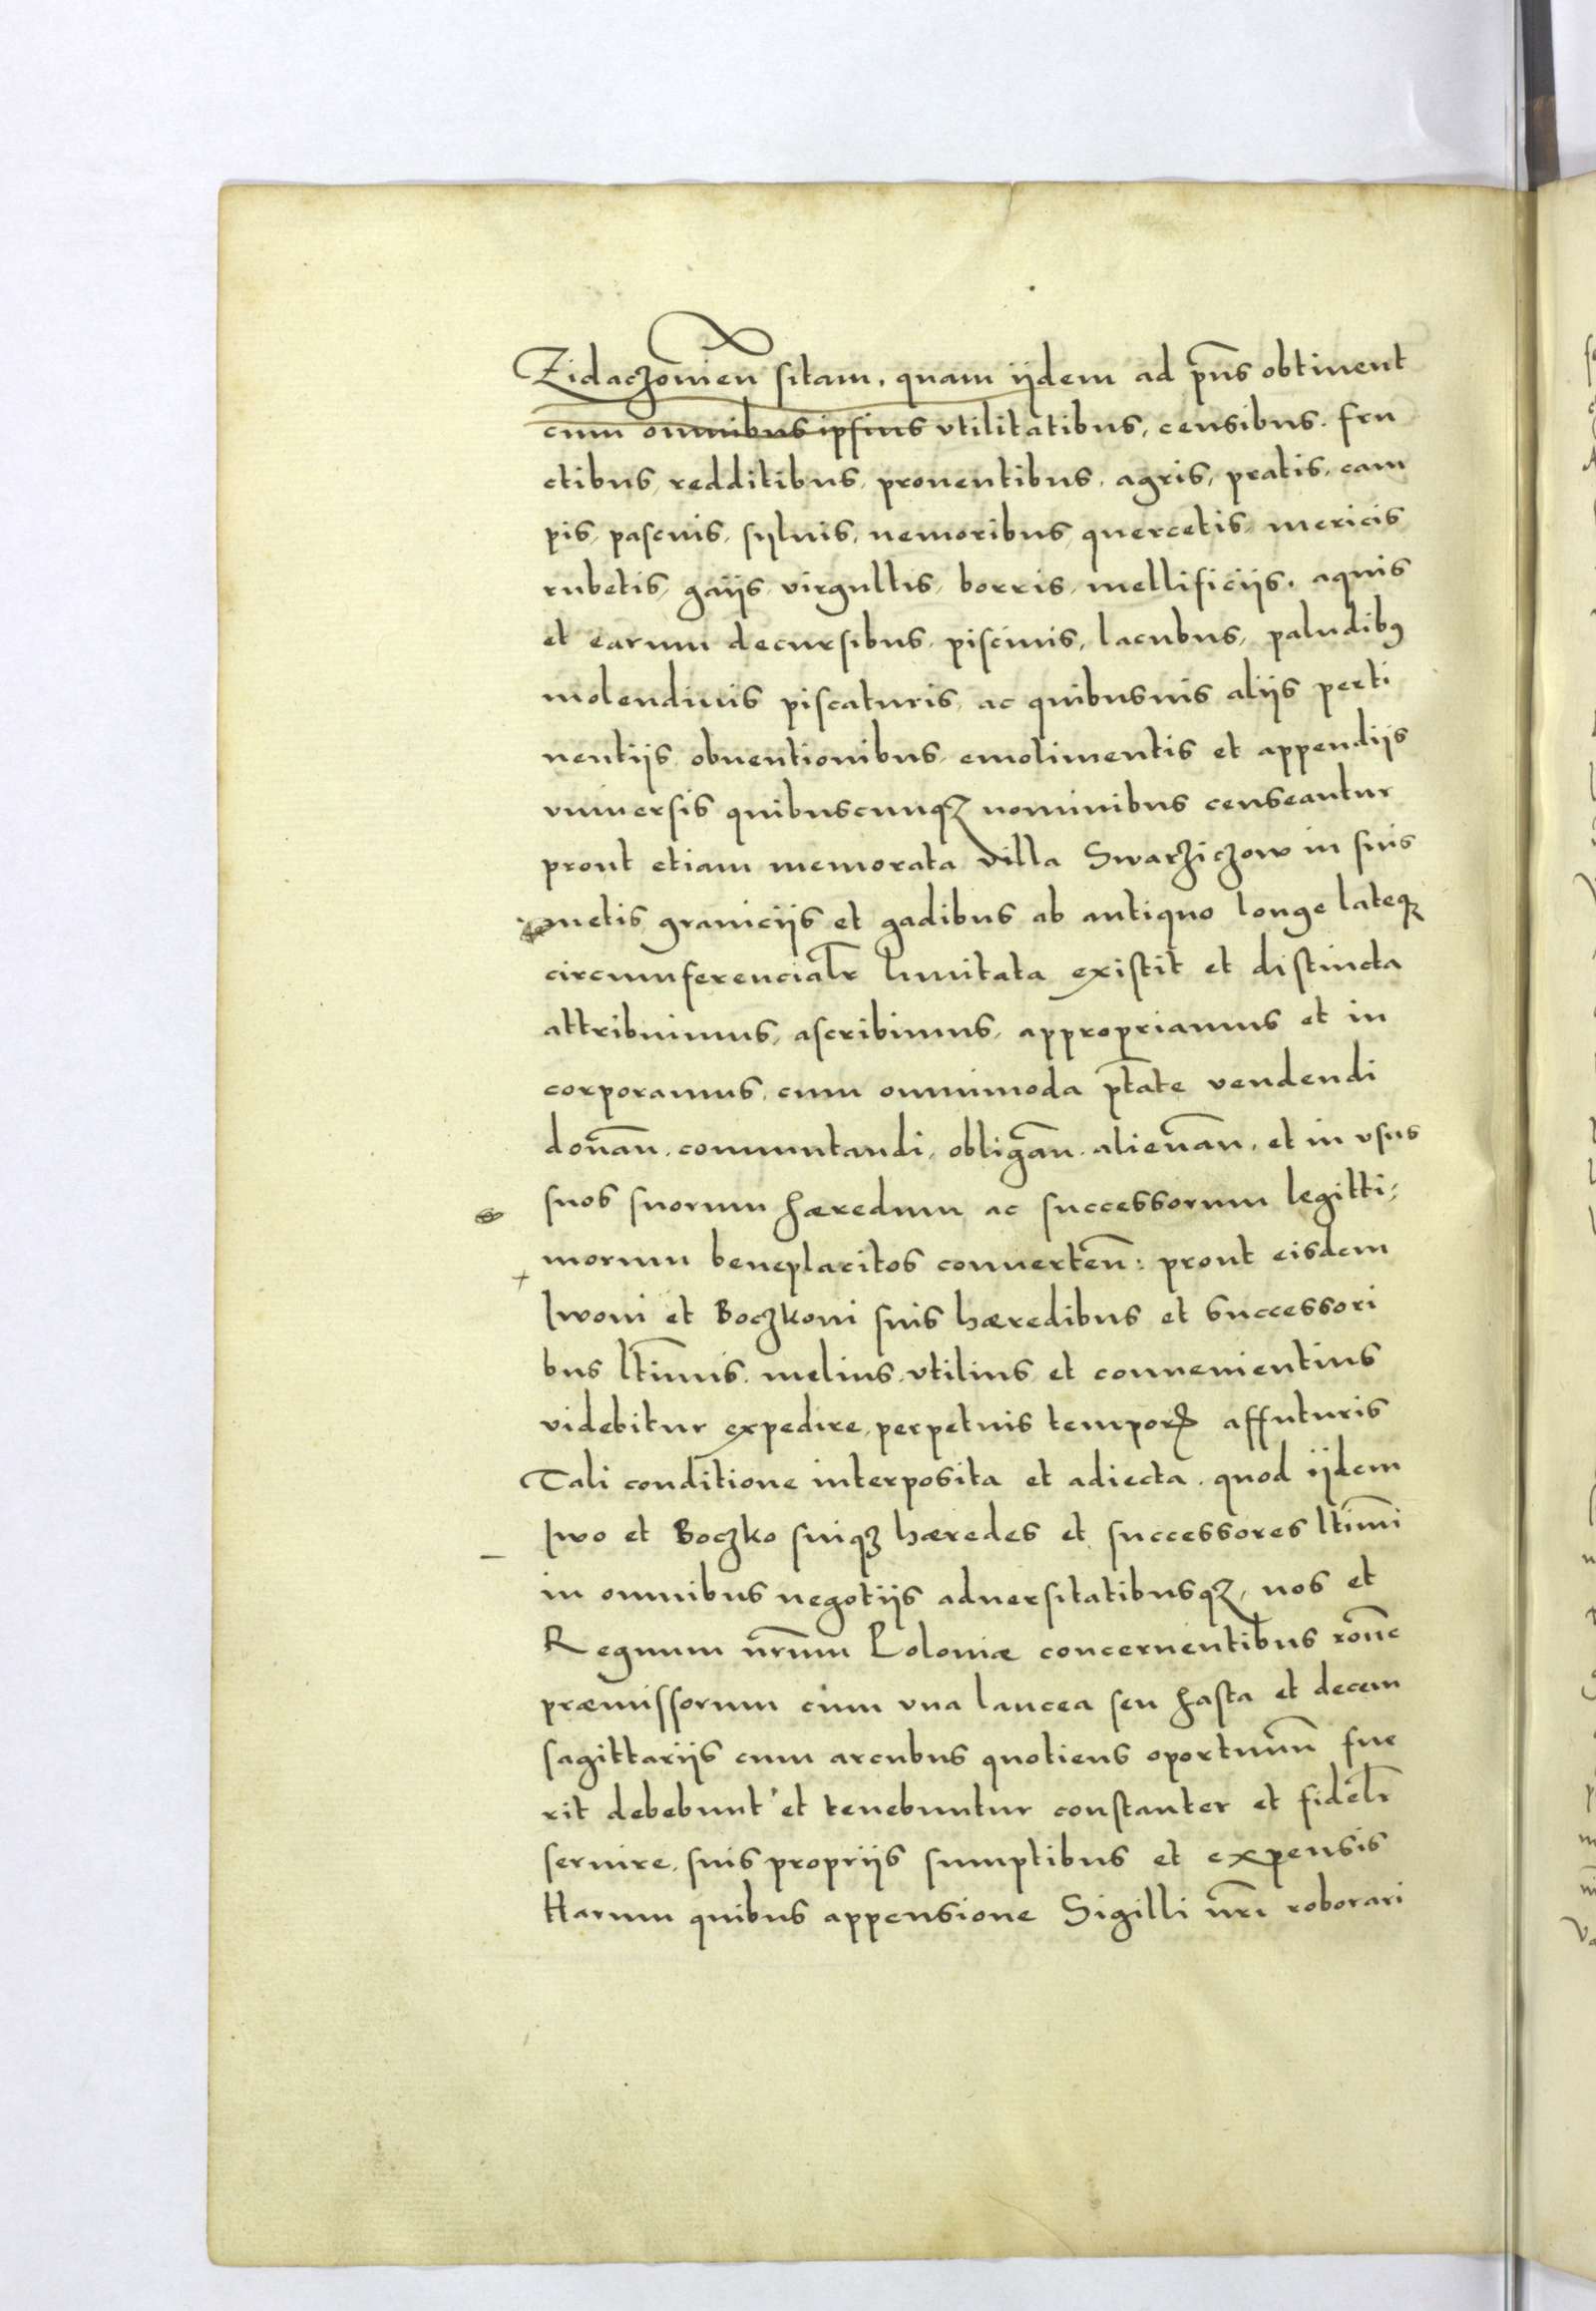 Zidaczovien̄ sitam, quam ijdem ad pn̄s obtinent
cum omnibus ipsius vtilitatibus, censibus. fru
ctibus, redditibus, prouentibus, agris, pratis, cam
pis, pascuis, syluis, nemoribus, quercetis, mericis
rubetis, gaijs, virgultis, borris, mellificijs, aquis
et earum decursibus, piscinis, lacubus, paludibꝰ
molendinis piscaturis, ac quibusuis alijs perti
nentijs obuentionibus, emolimentis et appendijs
vniuersis quibuscunqꝫ nominibus censeantur
prout etiam memorata villa Swarziczow in suis
metis granicijs et gadibus ab antiquo longe lateqꝫ
circumferencialr̄ limitata existit et distincta
attribuimus, ascribimus, appropriamus et in
corporamus, cum omnimoda ptāte vendendi
donān. commutandi, obligān. alienān, et in vsus
suos suorum hæredum ac successorum legitti,
morum beneplacitos conuertēn: prout eisdem
Iwoni et Boczkoni suis hæredibus et successori
bus ltīmis. melius, vtilius et conuenientius
videbitur expedire, perpetuis temporꝭ affuturis
Tali conditione interposita et adiecta. quod ijdem
Iwo et Boczko suiqꝫ hæredes et successores ltīmi
in omnibus negotijs aduersitatibusqꝫ, nos et
Regnum nr̄um Poloniæ concernentibus rōne
præmissorum cum vna lancea seu hasta et decem
sagittarijs cum arcubus quotiens oportunū fue
rit debebunt et tenebuntur constanter et fidelr̄
seruire, suis proprijs sumptibus et expensis
Harum quibus appensione Sigilli nr̄i roborari